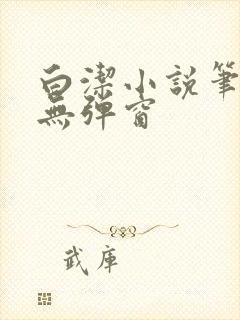 白潔小說筆
無彈窗
武庫